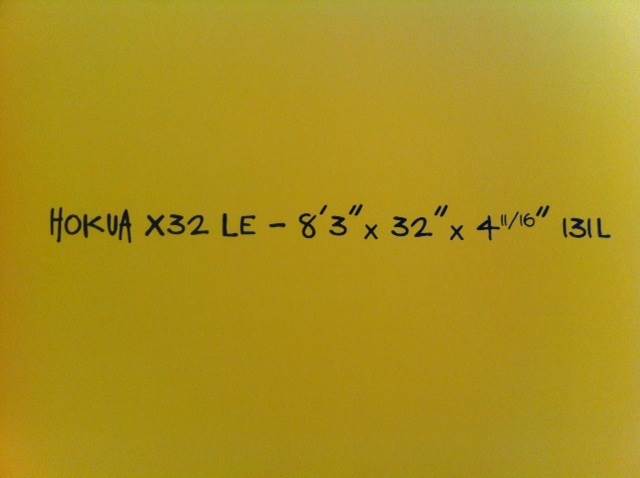 HOKUA X32 LE - 8'3" x 32" x 4 11/16" 131L